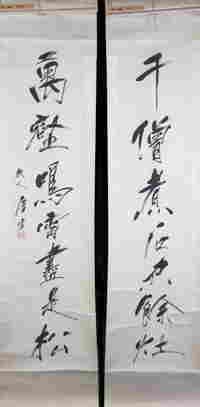 千僧煮石安餘灶
萬壑鳴雷盡是松